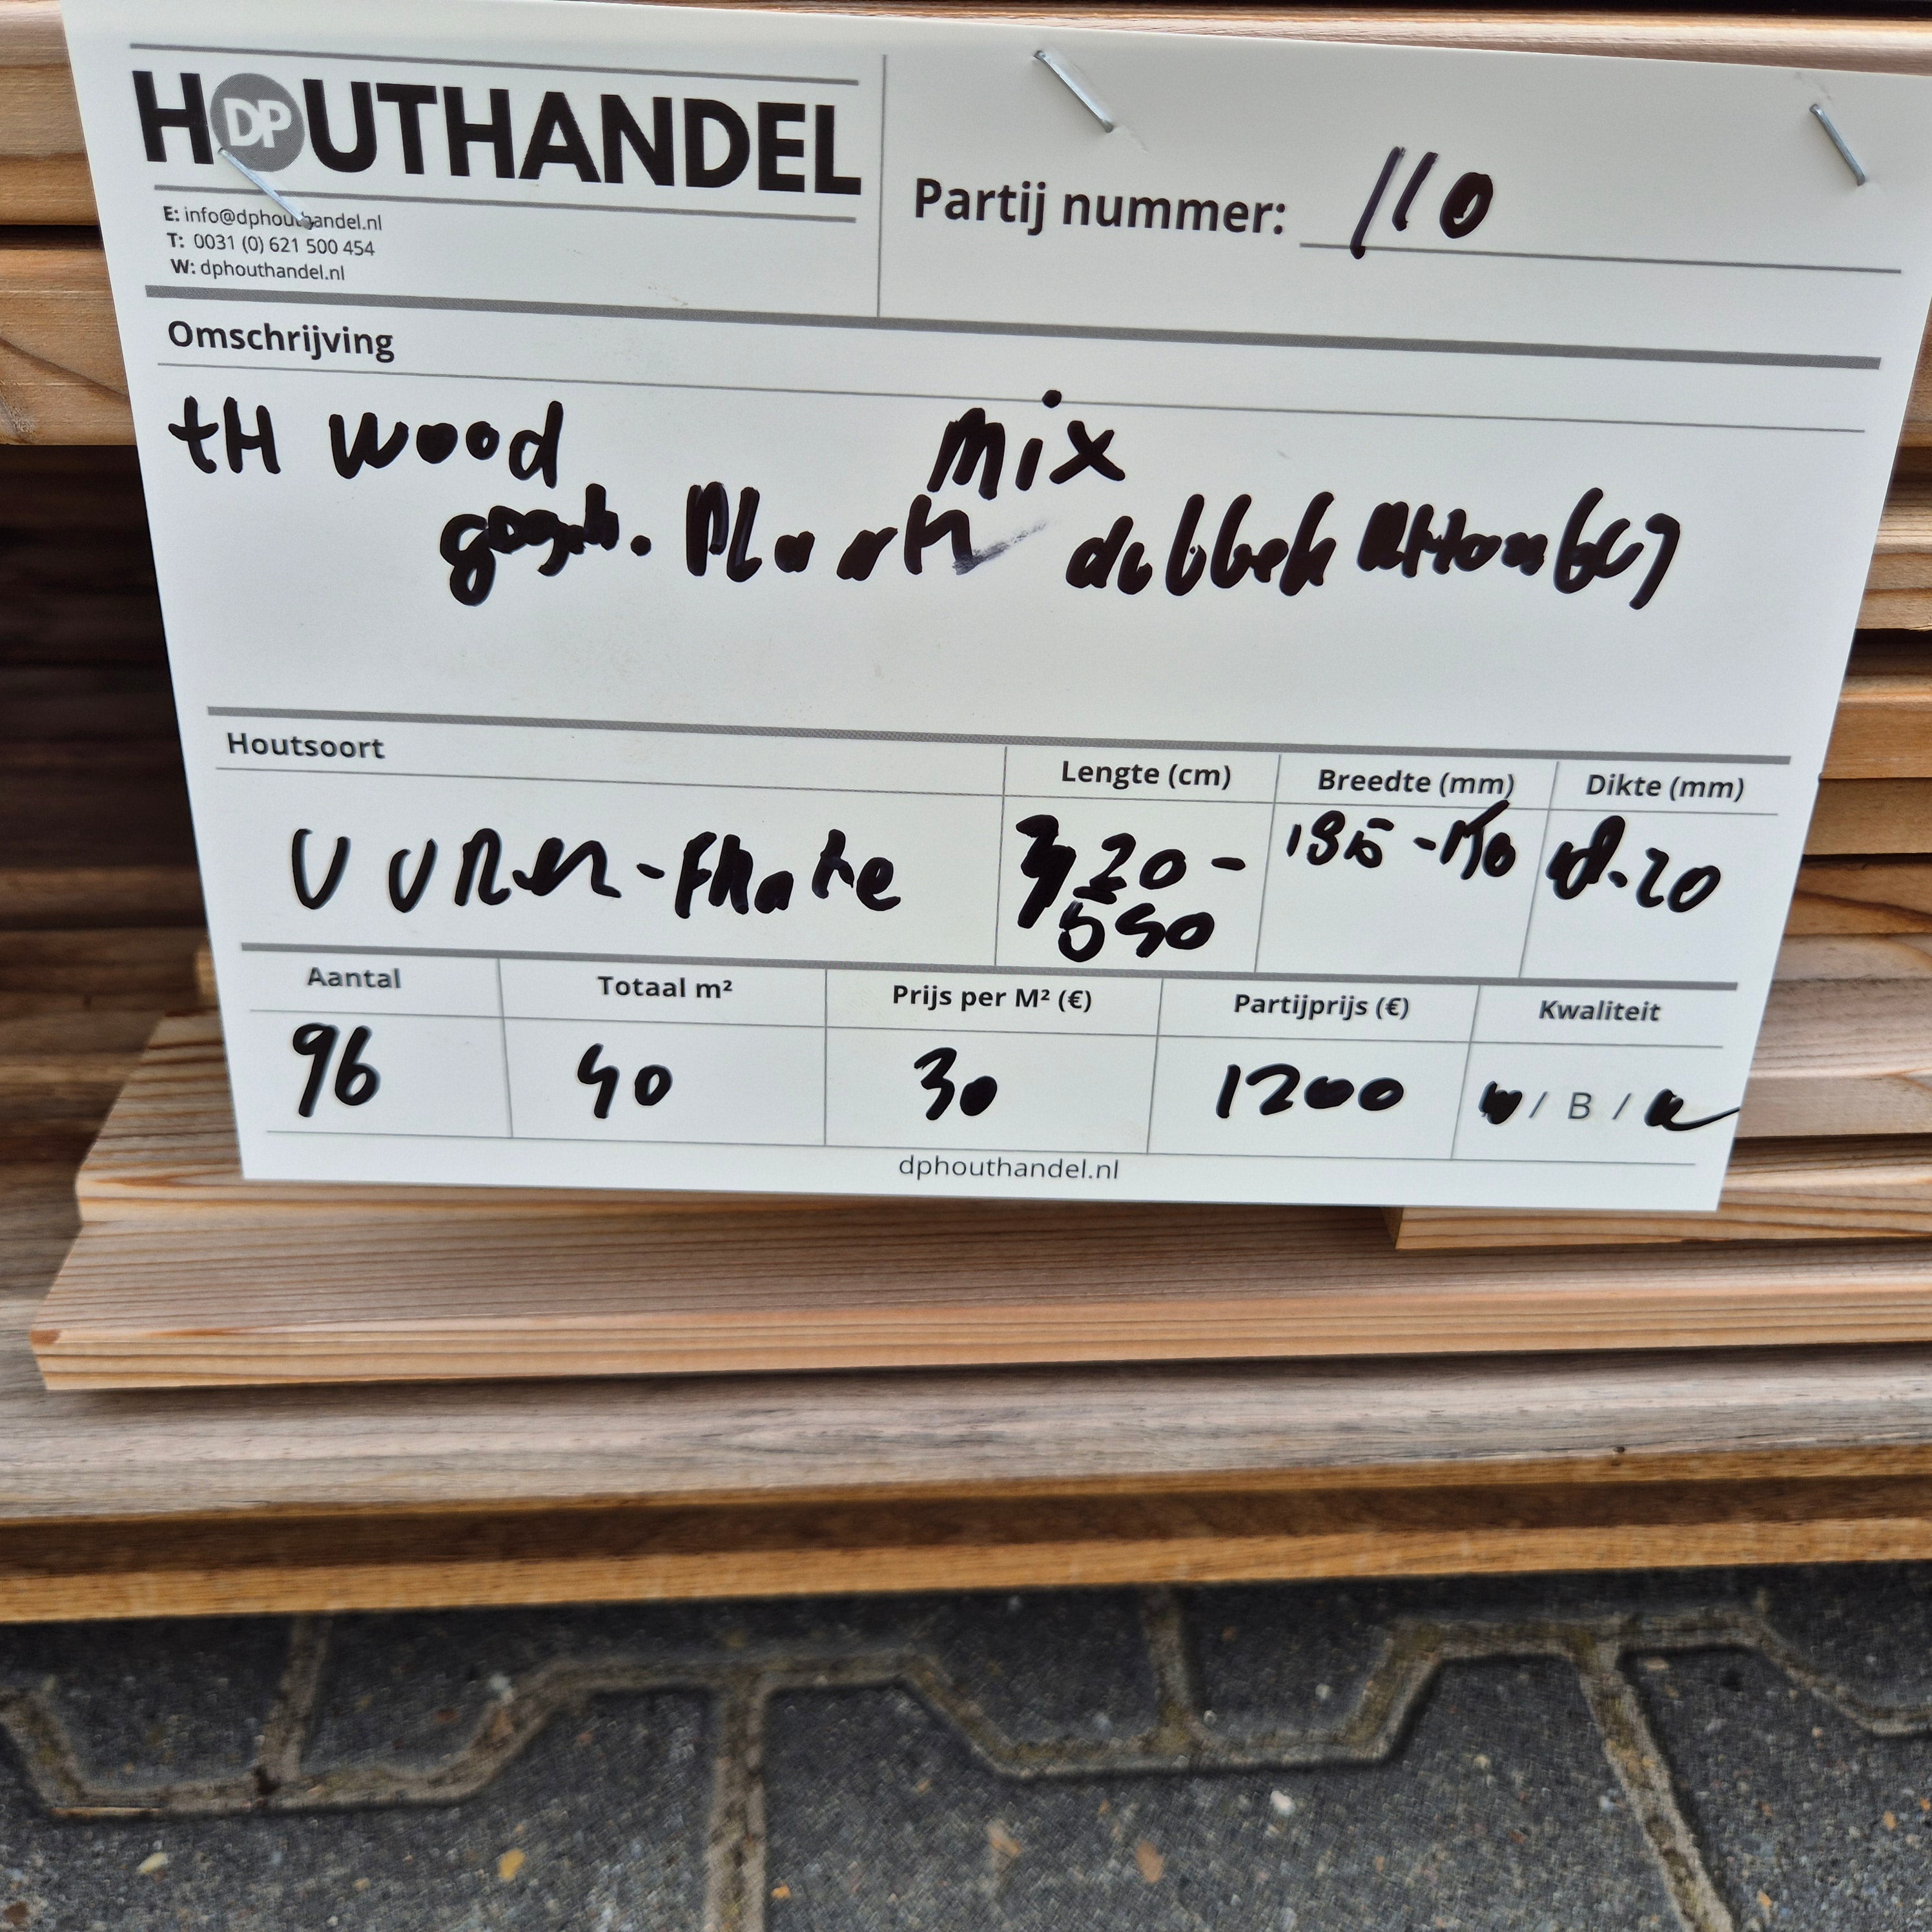 HOUTHANDEL
DP
E: info@dphouthandel.nl
T: 0031 (0) 621 500 454
W: dphouthandel.nl
Partij nummer: 110
Omschrijving
tH wood mix
dubbel
Houtsoort
Lengte (cm)
Breedte (mm)
Dikte (mm)
VUREN-
320-
195 -
Aantal
Totaal m²
Prijs per M² (€)
Partijprijs (€)
Kwaliteit
96
40
30
1200
/ B /
dphouthandel.nl